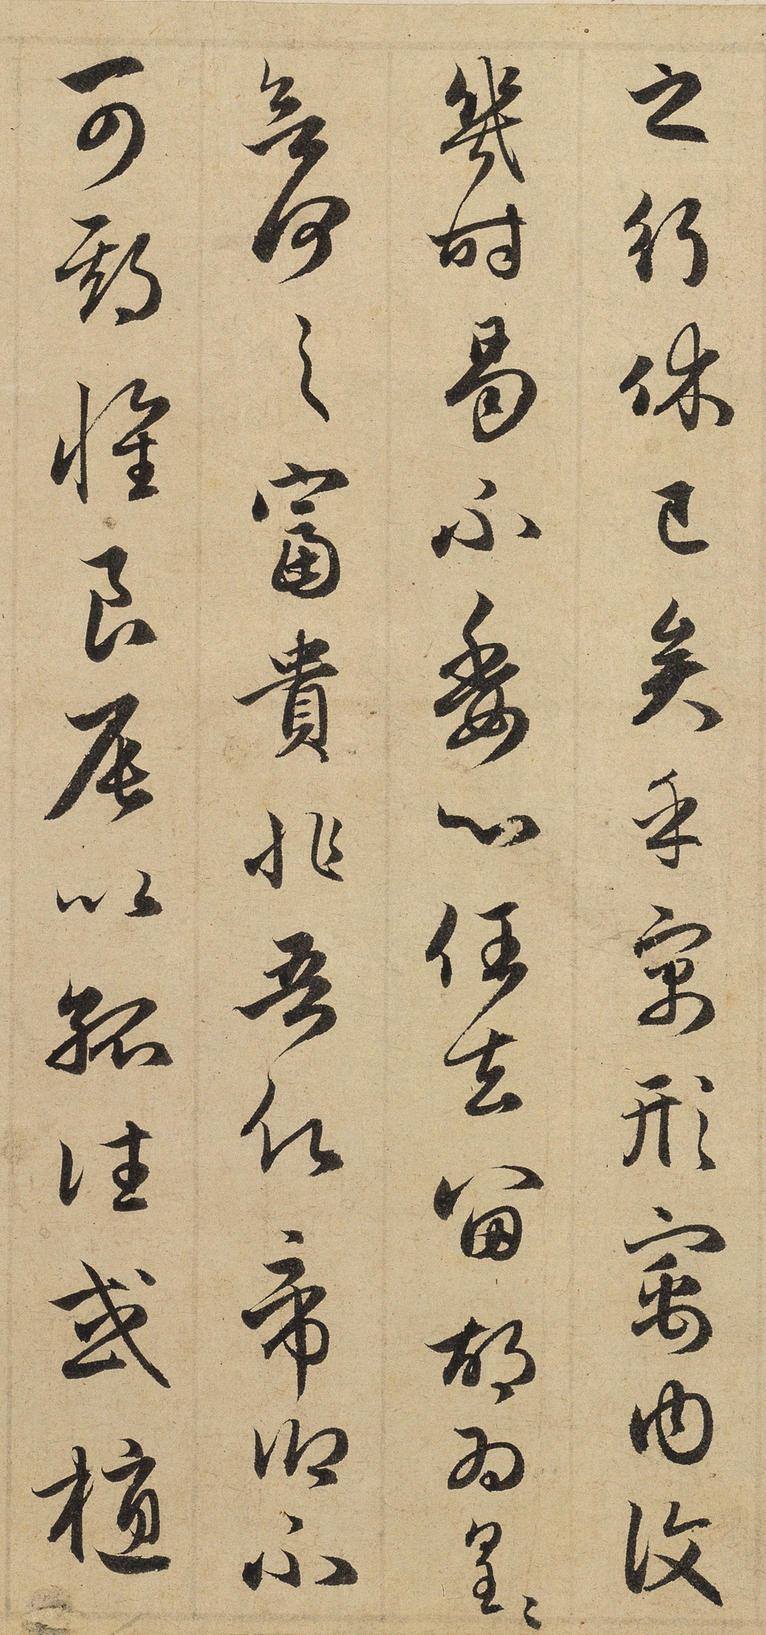 之行休已矣乎寓形寓內復
幾時曷不委心任去留胡為皇〻
兮何之富貴非吾仁帝鄉不
可期懷良辰以孤往或植